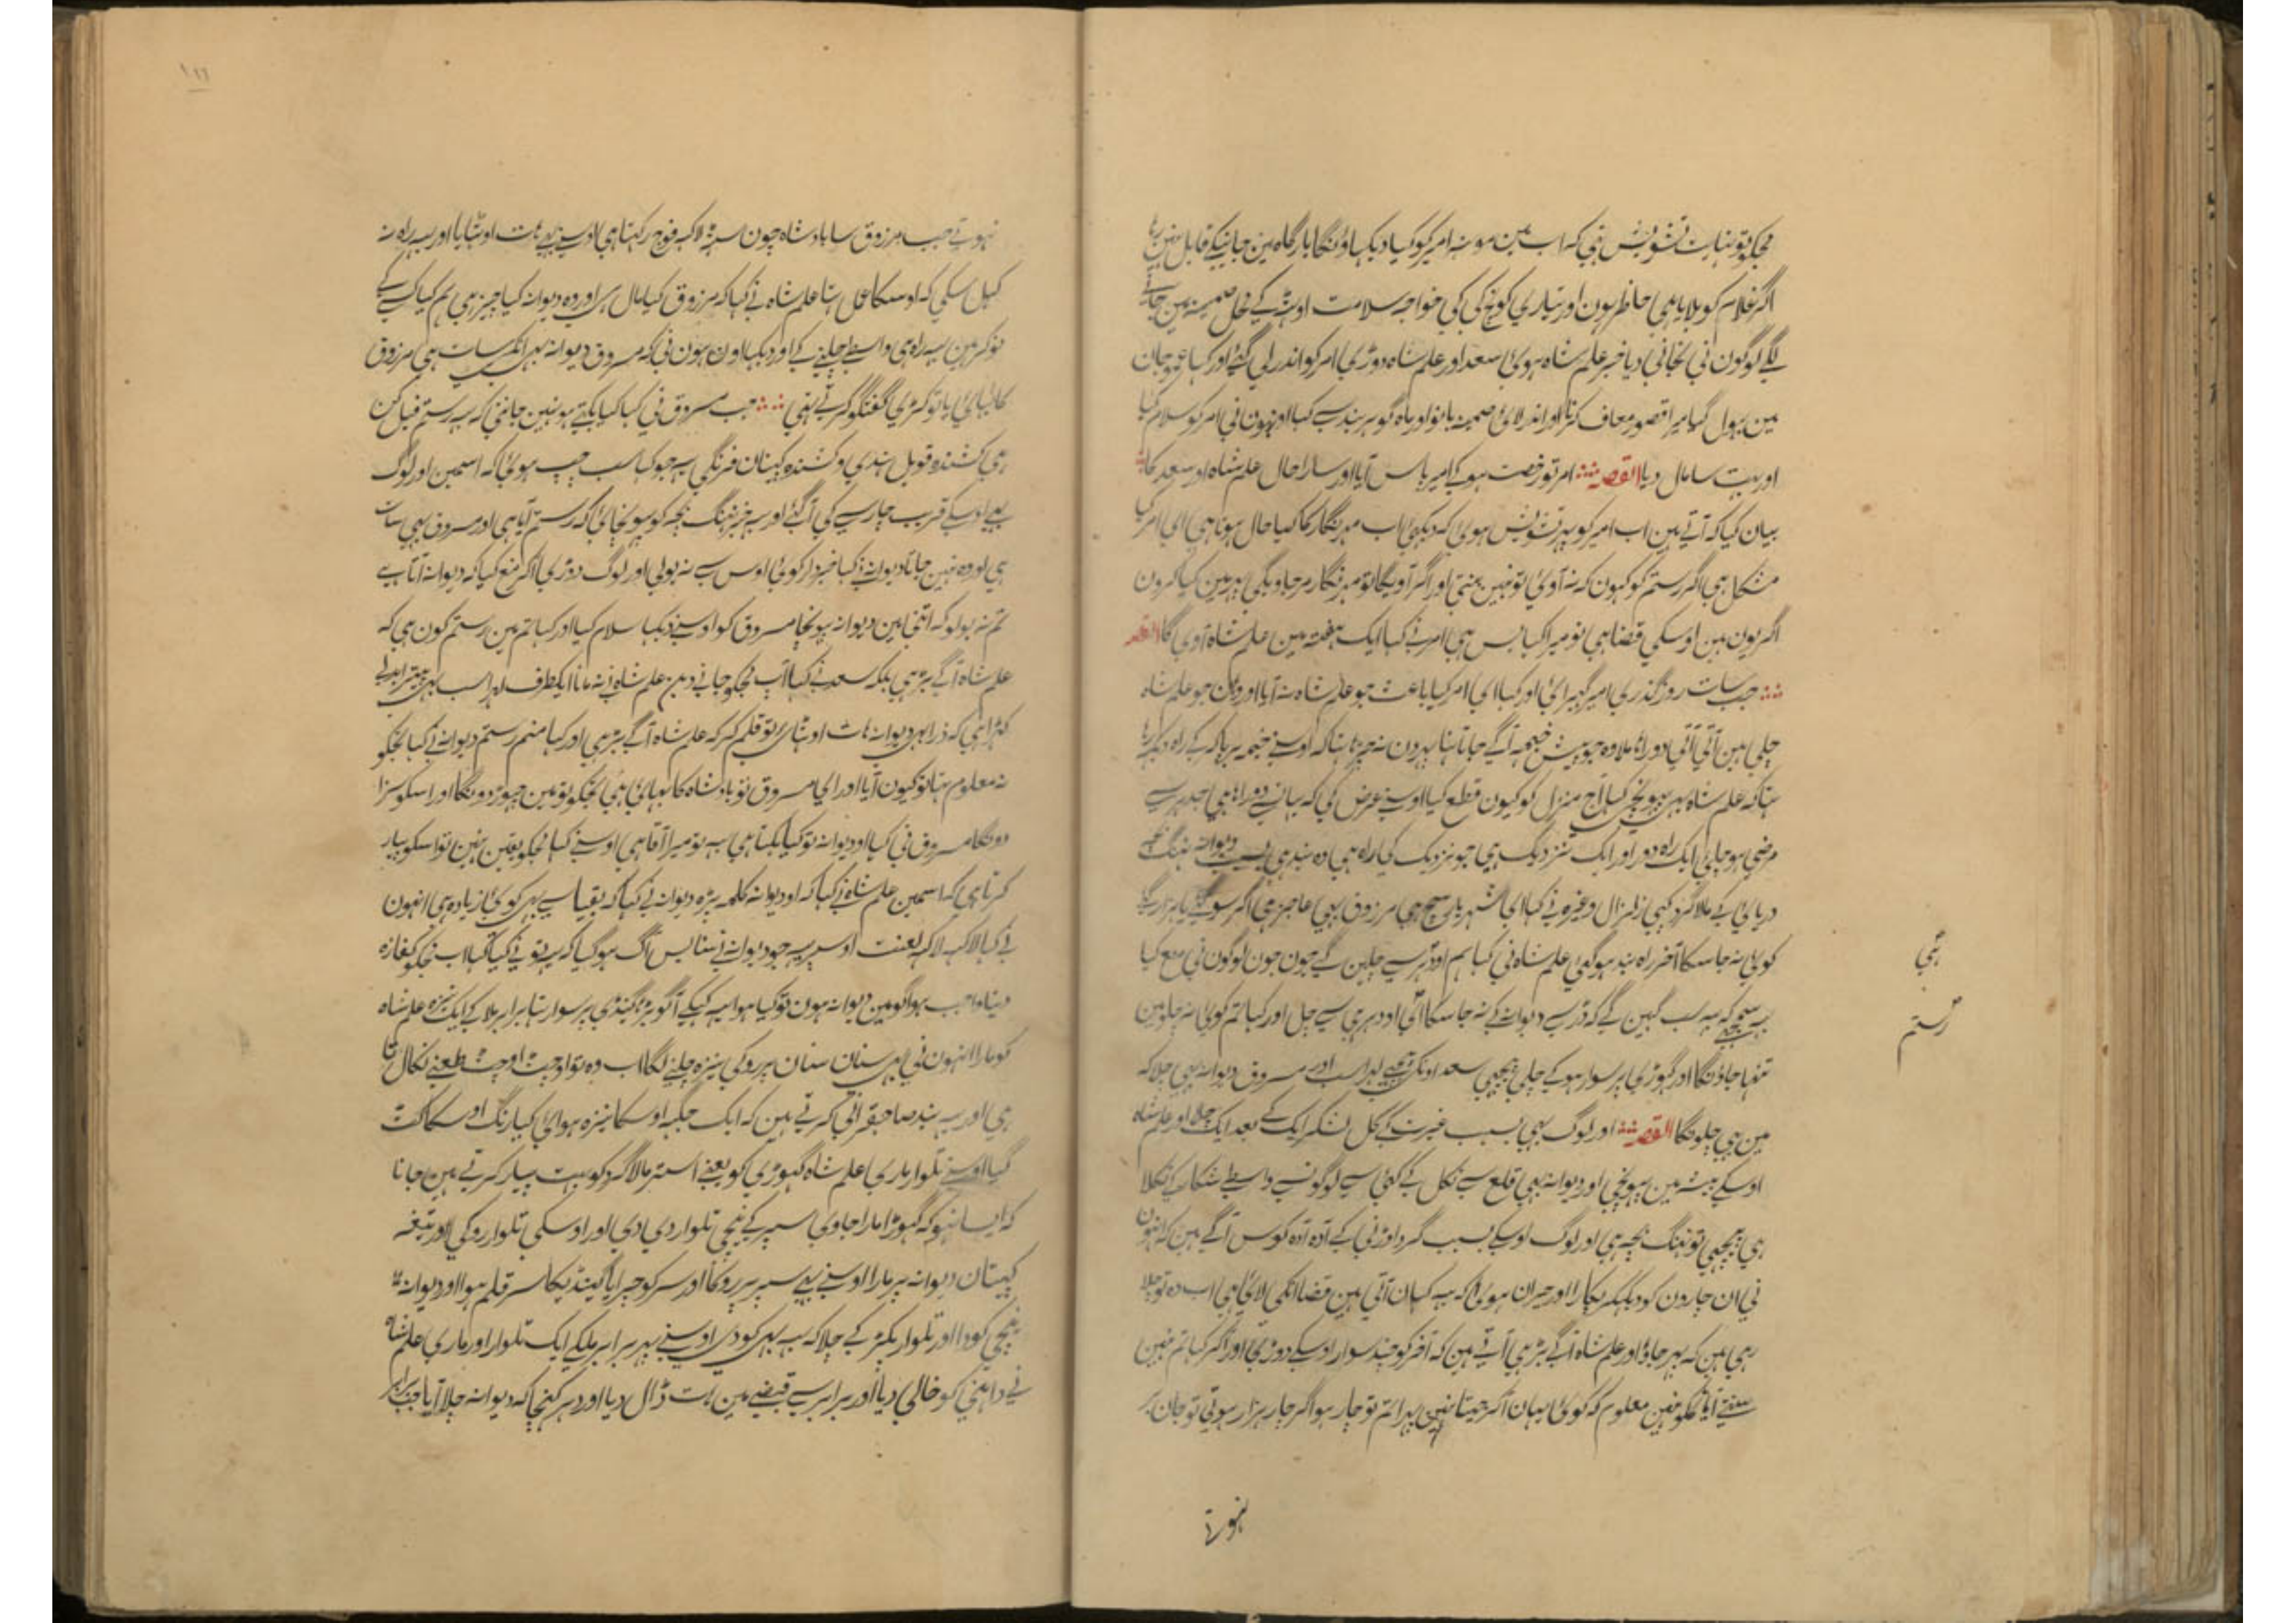 مجکو تو نہایت تشویش تہی کہ اب مین مونہ امیر کو کیا دیکہاؤنگا بارگاہ مین جانیکے قابل نہین رہا
اگر غلام کو بلایا ہی حاظر ہون اور تیاری کونچ کی کی خواجہ سلامت اوٹہہ کے محل صمینہ مین جانے
لگے لوگون نی خبر علم شاہ ہوئی سعد اور علم شاہ دوڑی امر کو اندر لی گئے اور کہا عمو جان
مین بہول گیا میرا قصور معاف کرنا اور اندر لائی صمینہ بانو اور ماہ گوہر بند سے کہا اونہون نی امر کو سلام کیا
اور بہت سا مال دیا القصہ امر تو رخصت ہو کے امیر پاس آیا اور سارا حال علم شاہ اور سعد کا
بیان کیا کہ آتے ہین اب امیر کو یہ تشویش ہوئی کہ دیکہئی اب مہرنگار کا کیا حال ہوتا ہی ای امر کیا
مشکل ہی اگر رستم کو کہون کہ نہ آوی تو نہین بنتی اور اگر آویگا تو مہرنگار مرجاویگی پہر مین کیا کرون
اگر یون ہین اوسکی قضا ہی تو میرا کیا بس ہی امر نے کہا ایک ہفتہ مین علم شاہ آوی گا القصہ
جب سات روز گذری امیر گہبرائی اور کہا ای امر کیا باعث جو علم شاہ نہ آیا اور وہان جو علم شاہ
چلی ہین آتی آتی دوراہا ملا وہ جو پیش خیمہ آگے جاتا تہا اوسنے خیمہ برپا کر کے راہ دیکہہ رہا
تہا کہ علم شاہ بہی پہونچے کہا آج منزل کو کیون قطع کیا اوسنے عرض کی کہ یہانسے دوراہا ہی جدہر سے
مرضی ہو چلئی ایک راہ دور اور ایک نزدیک ہی جو نزدیک کی راہ ہی وہ بند ہی بسبب دیوانہ نہنگ بچے
دریائی کے مالا گرد کہپی زلزال وغیرہ نے کہا ای شہریار سچ ہی مرزوق بہی عاجز ہی اگر سو گئے یا ہزار گئے
کوئی نہ جا سکا آخر راہ بند ہوگئی علم شاہ نی کہا ہم اودہر سے چلین گے جون جون لوگون نی منع کیا
یہ سمجہے کہ یہ سب کہین گے کہ ڈر سے دیوانے کے نہ جا سکا ای اودہر ہی سے چل اور کہا تم کوئی نہ چلو مین
تنہا جاؤنگا اور گہوڑی پر سوار ہو کے چلی پیچہی سعد اونکی پیچہے لہراسپ اور مسروق دیوانہ بہی چلا کہ
مین بہی چلونگا القصہ اور لوگ بہی بسبب غیرت کے کل لشکر ایک کے بعد ایک چلا اور علم شاہ
اوسکے بیشہ مین پہونچی اور دیوانہ بہی قلع سے نکل کے کئی سے لوگونسے واسطے شکار کے نکلا
ہی پیچہی تو نہنگ بچہ ہی اور لوگ اوسکے بسبب گرد اوڑنی کے آدہ آدہ کوس آگے ہین کہ انہون
نی ان چارون کو دیکہکر پکارا اور حیران ہوئی کہ یہ کہان آتی ہین قضا انکی لائی ہی اب وہ تو چلا
رہی ہین کہ پہر جاؤ اور علم شاہ آگے بڑہی آتے ہین کہ آخر کو چند سوار اوسکے دوڑی اور آکر کہا تم نہین
سنتے آیا تمکو نہین معلوم کہ کوئی یہان آکر جیتا نہین پہرا تم تو چار ہو اگر چار ہزار ہوتی تو جان بر
نہوتے
ہجی
رستم
۱۲۲
نہوتے جب مرزوق سا بادشاہ جون سٹہہ لاکہہ فوج رکہتا ہی اوسنے بہی ہات اوٹہایا اور یہ راہ نہ
کہل سکی کہ اوسکا عمل تہا علم شاہ نے کہا کہ مرزوق کیا مال ہی اور وہ دیوانہ کیا چیز ہی ہم کیا کسی کے
نوکر ہین یہ راہ ہی واسطے چلنے کے اور دیکہا اون ہون نی کہ مسروق دیوانہ بہی انکے سات ہی مرزوق
کا بہائی یا تو کڑی گفتگو کرتے تہی جب مسروق نی کہا کیا بکتے ہو نہین جانتی کہ یہ رستم فیل کن
ہی کشندہ قویل ہندی و کشندہ کپتان فرنگی یہ جو کہا سب چپ ہوئی کہ اسمین اور لوگ
بہی اوسکے قریب چار سے کی آگئے اور یہ خبر نہنگ بچہ کو پہونچائی کہ رستم آیا ہی اور مسروق بہی سات
ہی اور وہ نہین جاتا دیوانہ نے کہا خبردار کوئی اوس سے نہ بولی اور لوگ دوڑی آکر منع کیا کہ دیوانہ آتا ہے
تم نہ بولو کہ اتنی مین دیوانہ پہونچا مسروق کو اوسنے دیکہا سلام کیا اور کہا تم مین رستم کون ہی کہ
علم شاہ آگے بڑہی بلکہ سعد نے کہا آپ مجکو جانے دین علم شاہ نے نہ مانا ایکطرف لہراسپ بہی پیترا بدلے
کہڑا ہی کہ ذرا بہی دیوانہ ہات اوٹہائی تو قلم کر کہ علم شاہ آگے بڑہی اور کہا منم رستم دیوانہ نے کہا تجکو
نہ معلوم تہا تو کیون آیا اور ای مسروق تو بادشاہ کا بہائی ہی تجکو تو مین چہوڑ دونگا اور اسکو سزا
دونگا مسروق نی کہا او دیوانہ تو کیا بکتا ہی یہ تو میرا آقا ہی اوسنے کہا مجکو یقین نہین تو اسکو پیار
کرتا ہی کہ اسمین علم شاہ نے کہا کہ او دیوانہ کلمہ پڑہ دیوانہ نے کہا کہ بقیا سے بہی کوئی زیادہ ہی انہون
نے کہا لاکہہ لاکہہ لعنت اوسپر یہ جو دیوانہ نے سنا بس آگ ہو گیا کہ یہ تونے کیا کہا اب مجکو کفارہ
دینا واجب ہوا گو مین دیوانہ ہون تو کیا ہوا یہ کہکے آگو بڑہا گینڈی پر سوار تہا برابر ہلا کے ایک نیزہ علم شاہ
کو مارا انہون نی بہی سنان سنان پر روکی نیزہ چلنے لگا اب وہ تو اوچٹ اوچٹ طعنے نکال رہا
ہی اور یہ بند صاحبقرانی کرتے ہین کہ ایک جگہہ اوسکا نیزہ ہوائی کیا رنگ اوسکا کٹ
گیا اوسنے تلوار ماری علم شاہ گہوڑی کو یعنے استر مالا گرد کو بہت پیار کرتے ہین جانا
کہ ایسا نہو کہ گہوڑا مارا جاوی سپر کے نیچی تلوار دی دی اور اوسکی تلوار روکی اور تیغہ
کپتان دیوانہ پر مارا اوسنے بہی سپر پر روکا اور سر کو چرایا گینڈیکا سر قلم ہوا اور دیوانہ
نیچی کودا اور تلوار پکڑ کے چلا کہ یہ بہی کودی اوسنے پہر برابر ہلکے ایک تلوار اور ماری علم شاہ
نے داہنی کو خالی دیا اور برابر سے قبضے مین ہات ڈال دیا اور دیوانہ چلا آیا جب برابر